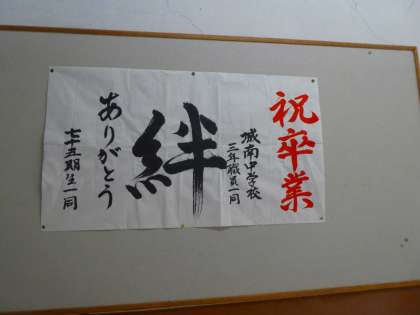 祝卒業
城南中学校
三年職員一同
絆
ありがとう
七十五期生一同